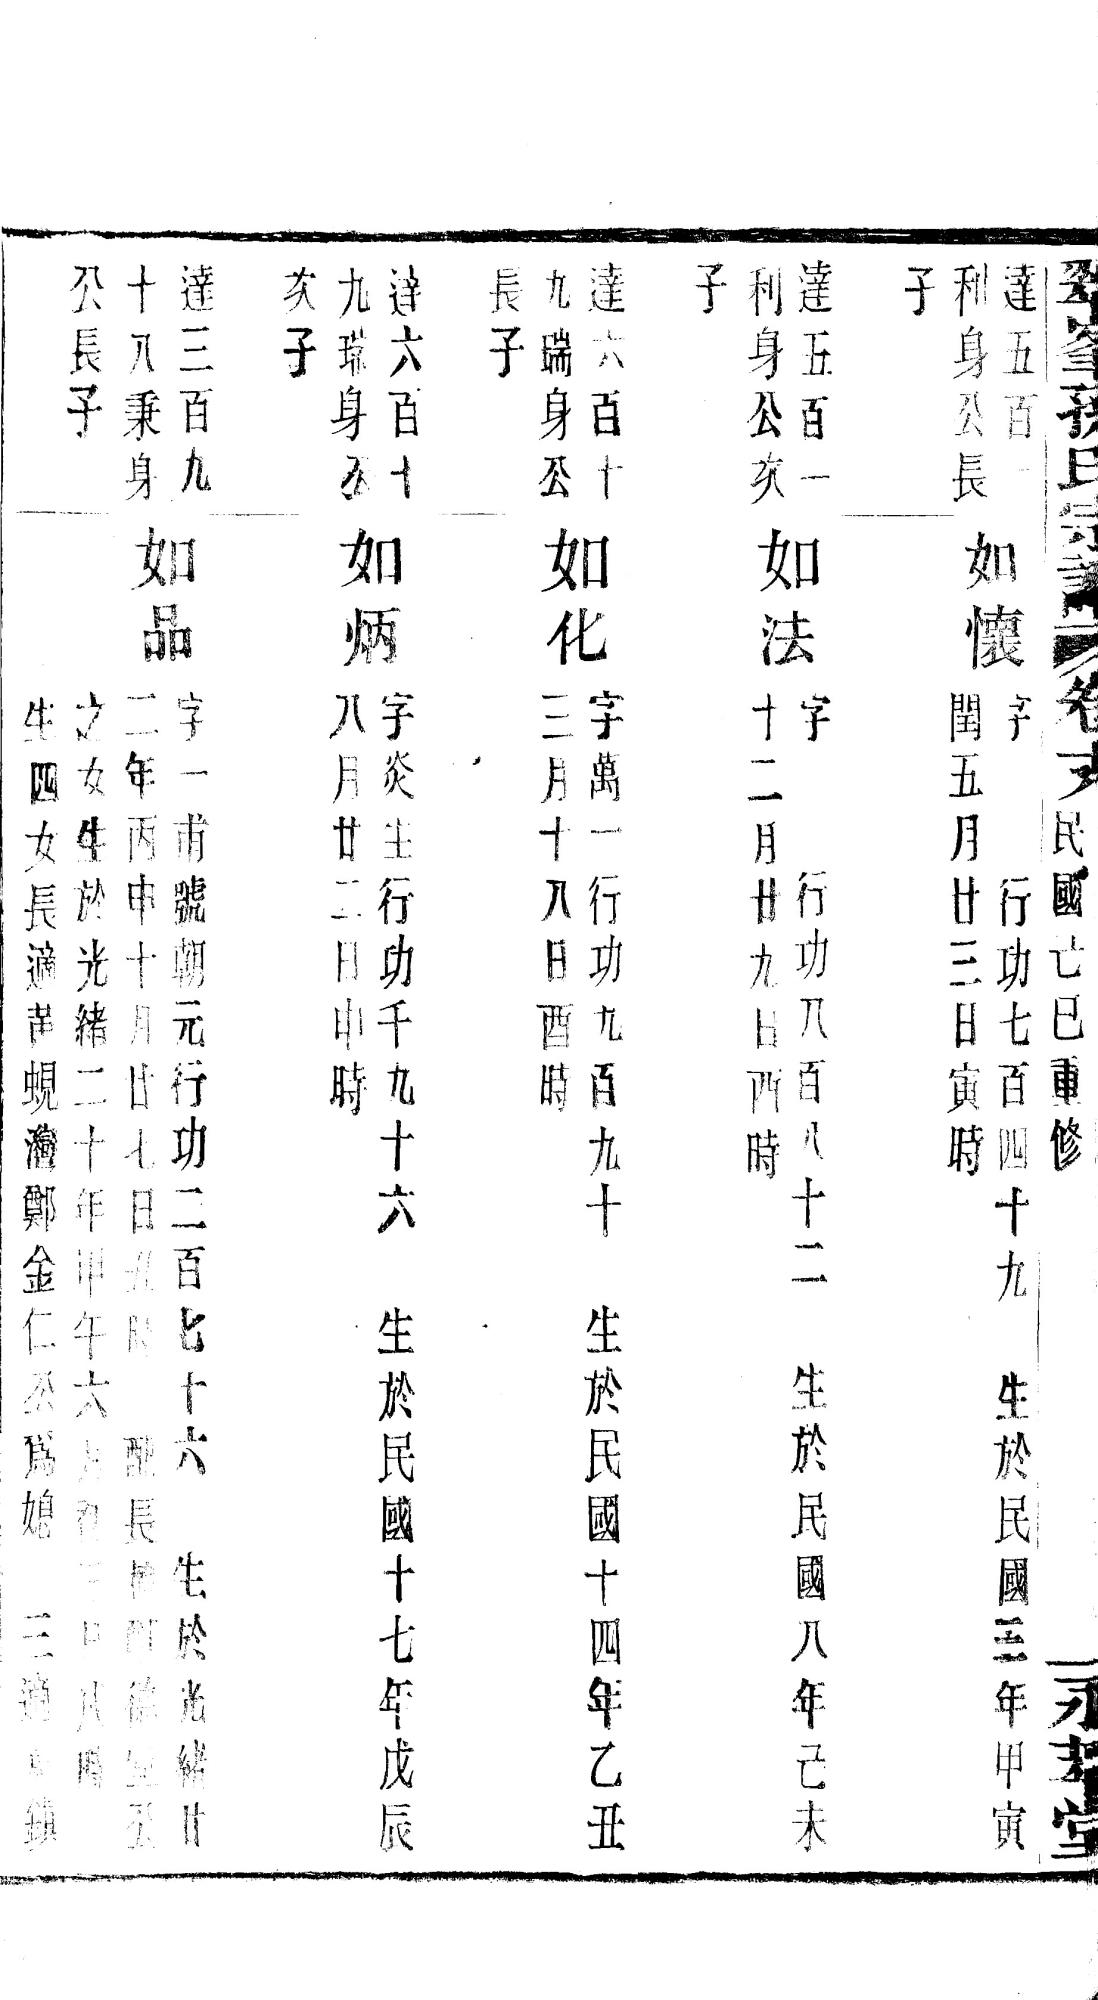 峯孫氏宗譜 卷 民國亡巳重修 永 堂
達五百一
利身公長
子
如懷
字 行功七百四十九 生於民國三年甲寅
閏五月廿三日寅時
達五百一
利身公次
子
如法
字 行功八百八十二 生於民國八年己未
十二月廿九日酉時
達六百十
九瑞身公
長子
如化
字萬一行功九百九十 生於民國十四年乙丑
三月十八日酉時
達六百十
九瑞身公
次子
如炳
字炎生行功千九十六 生於民國十七年戊辰
八月廿二日申時
達三百九
十八秉身
公長子
如品
字一甫號朝元行功二百七十六 生於光緒廿
二年丙申十月廿七日丑時 配長 德 公
之女生於光緒二十年甲午六月 日 時
生四女長適 蜆 鄭金仁公爲媳 三適 鎮